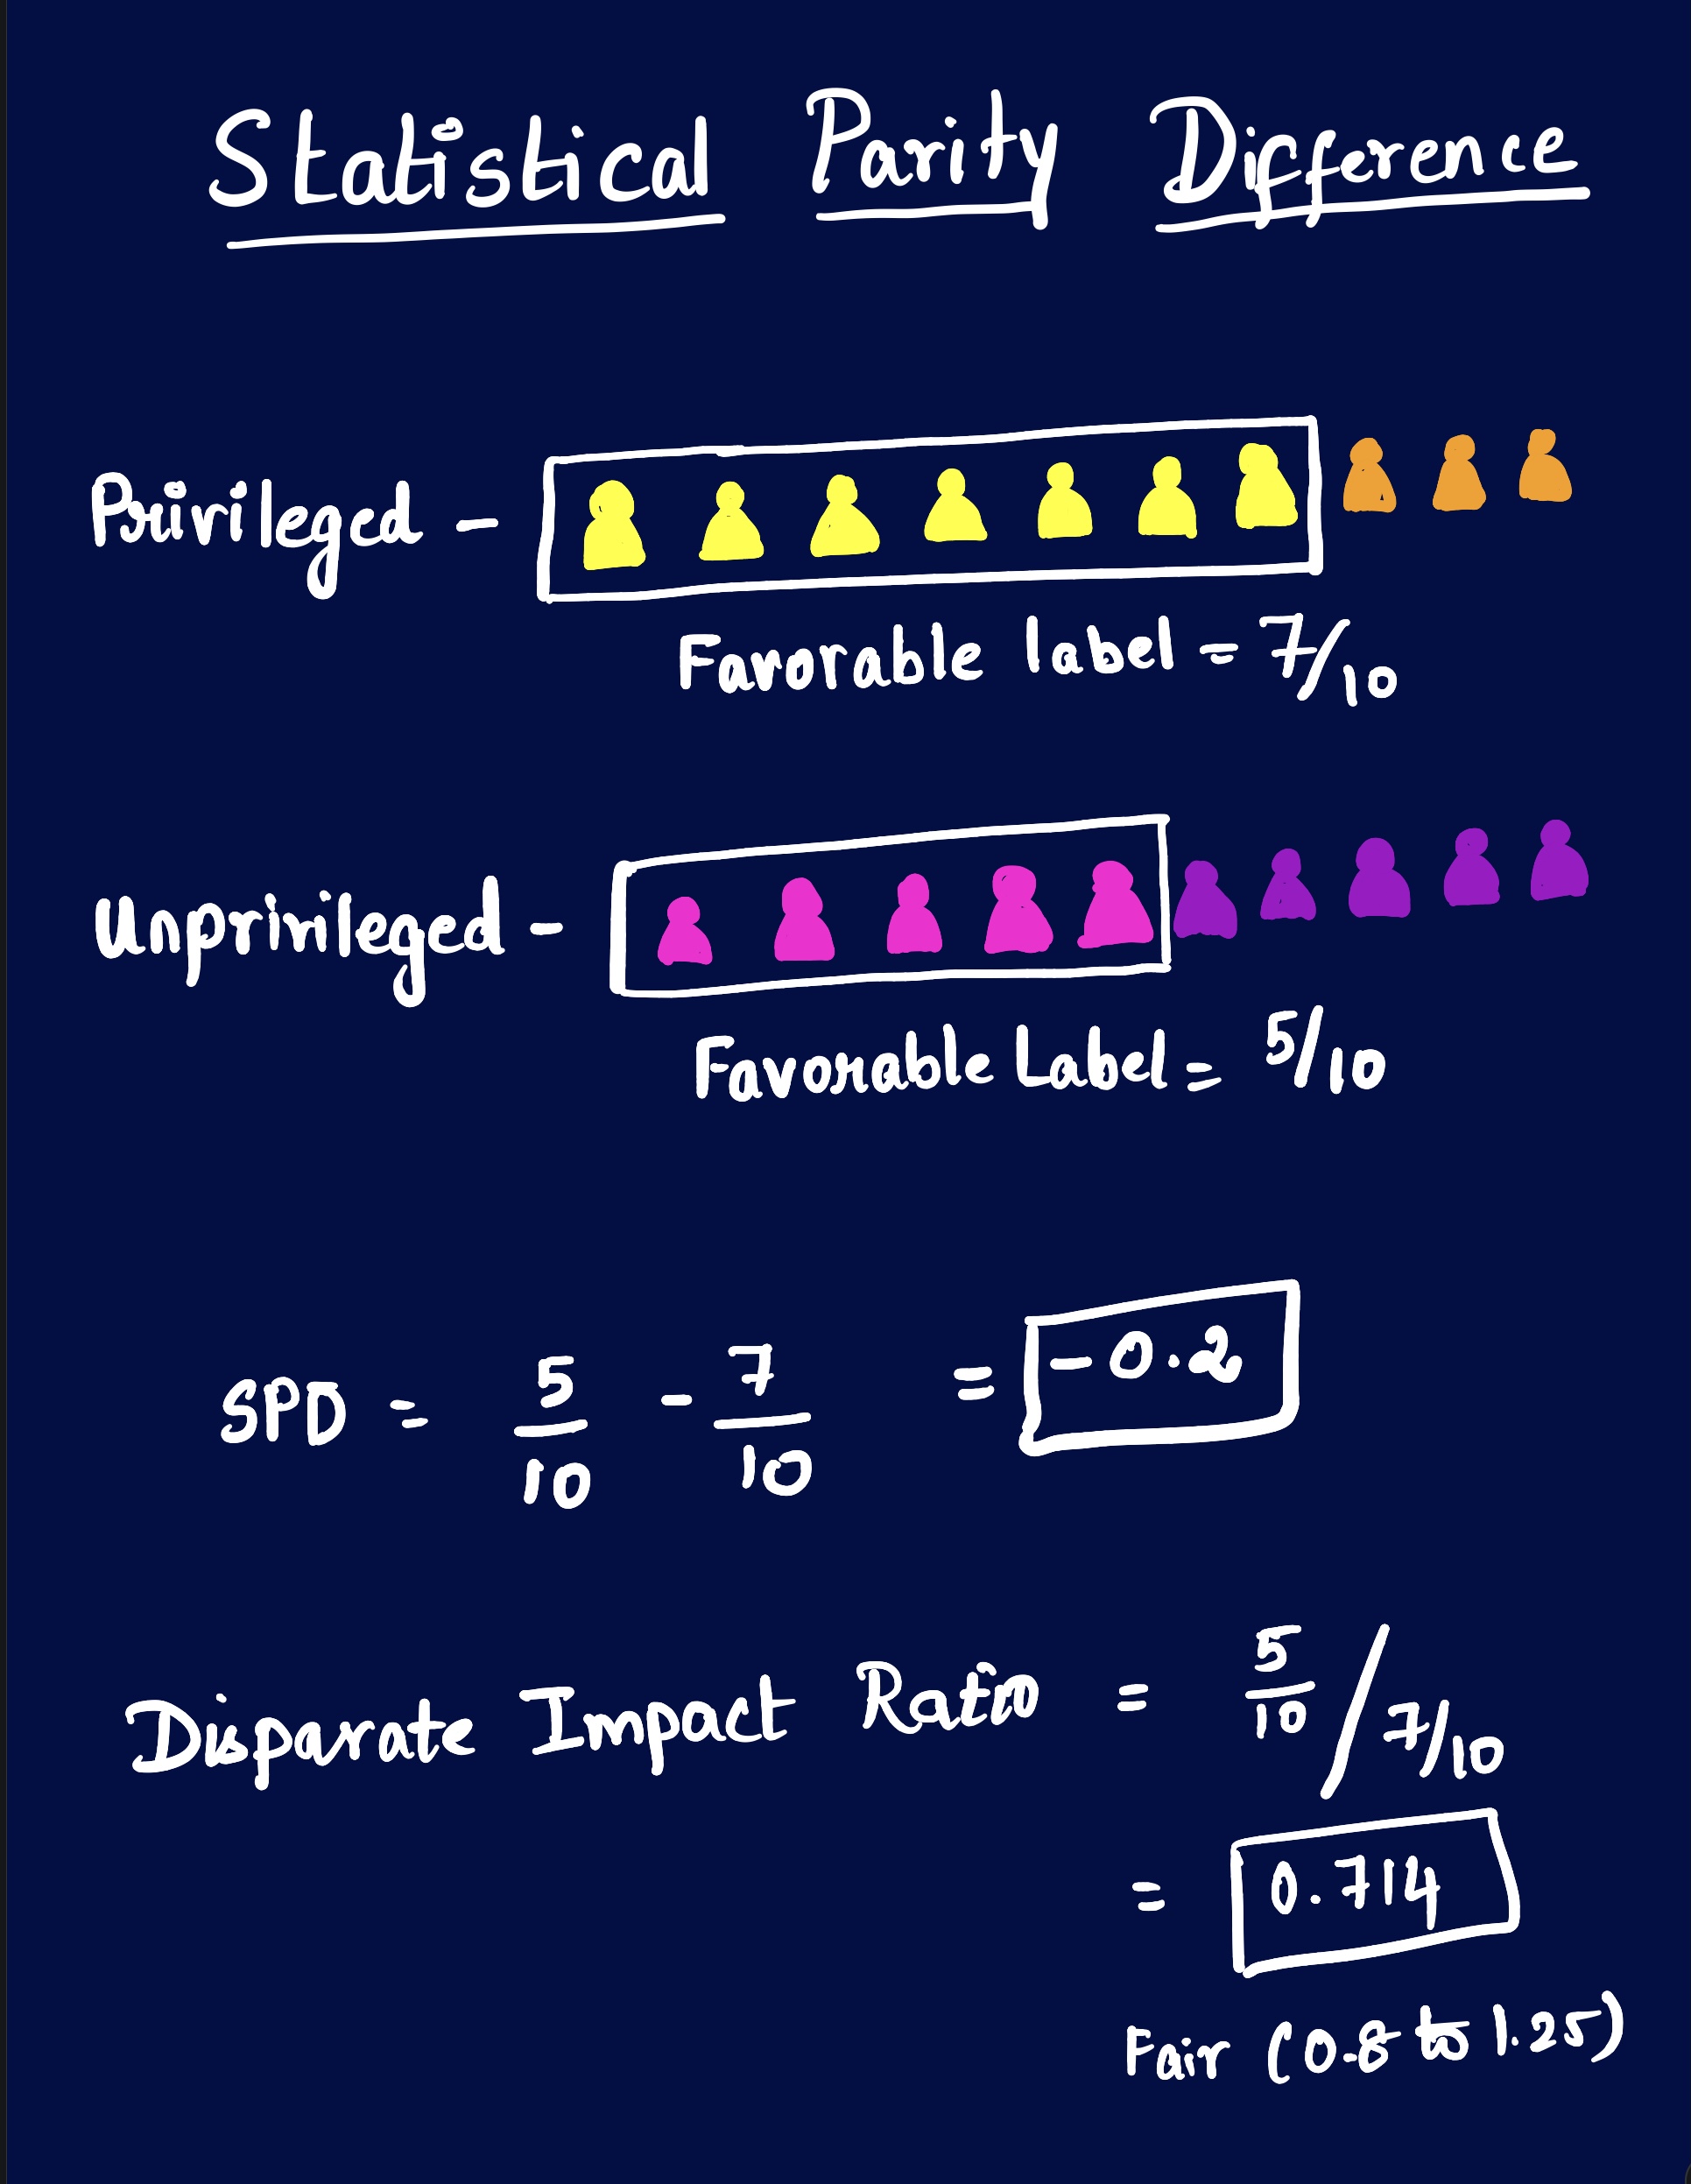 Statistical Parity Difference
Privileged -
Favorable label = 7/10
Unprivileged -
Favorable Label = 5/10
SPD = 5/10 - 7/10 = -0.2
Disparate Impact Ratio = 5/10 / 7/10
= 0.714
Fair (0.8 to 1.25)